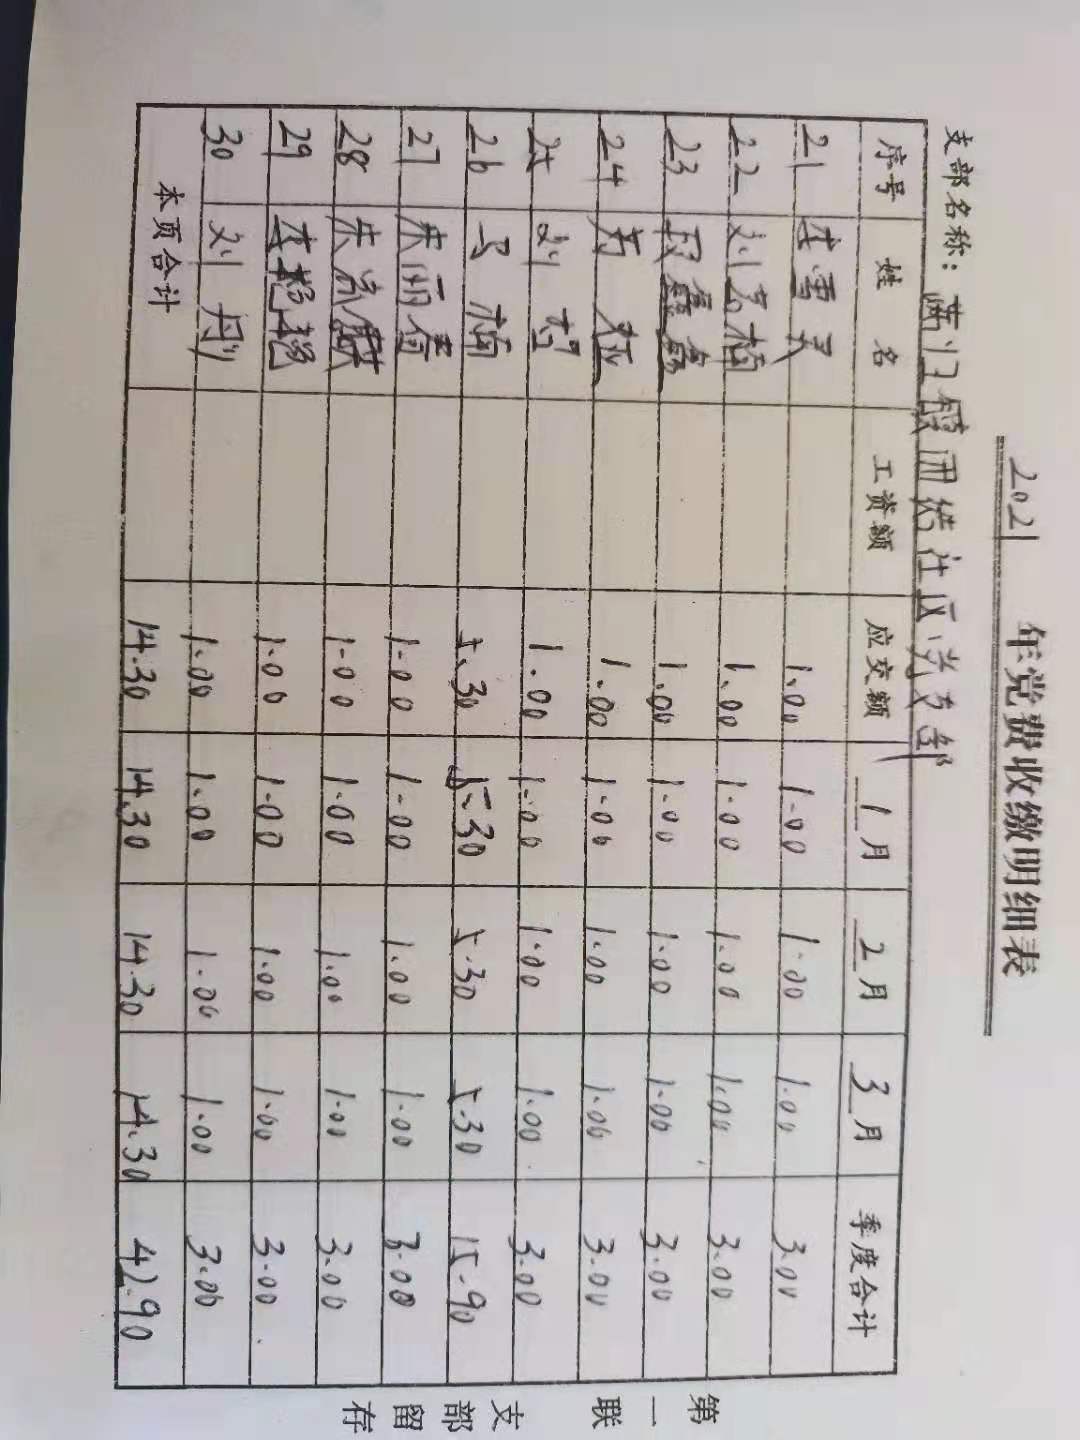 2021 年党费收缴明细表
支部名称：满归镇团结社区党支部
序号 姓名 工资额 应交额 1月 2月 3月 季度合计
21 李雪 1.00 1.00 1.00 1.00 3.00
22 刘 楠 1.00 1.00 1.00 1.00 3.00
23 1.00 1.00 1.00 1.00 3.00
24 1.00 1.00 1.00 1.00 3.00
25 刘 1.00 1.00 1.00 1.00 3.00
26 马楠 5.30 5.30 5.30 5.30 15.90
27 朱丽 1.00 1.00 1.00 1.00 3.00
28 朱 1.00 1.00 1.00 1.00 3.00
29 李艳艳 1.00 1.00 1.00 1.00 3.00
30 刘丹 1.00 1.00 1.00 1.00 3.00
本页合计 14.30 14.30 14.30 14.30 42.90
第一联 支部留存